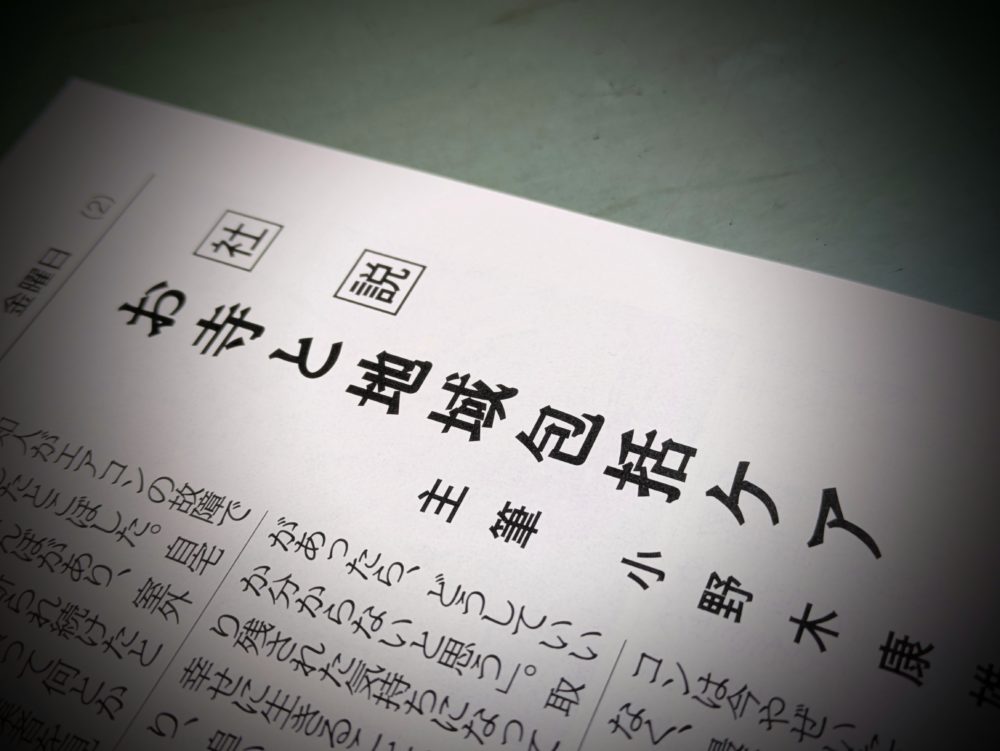 (2)
金曜日
社説
お寺と地域包括ケア
主筆 小野木康
人がエアコンの故障で
たとこぼした。自宅
んぼがあり、室外
られ続けたと
って何とか
があったら、どうしていい
か分からないと思う」。取
り残された気持ちになって
幸せに生きるこ
り、
コンは今やぜい
なく、